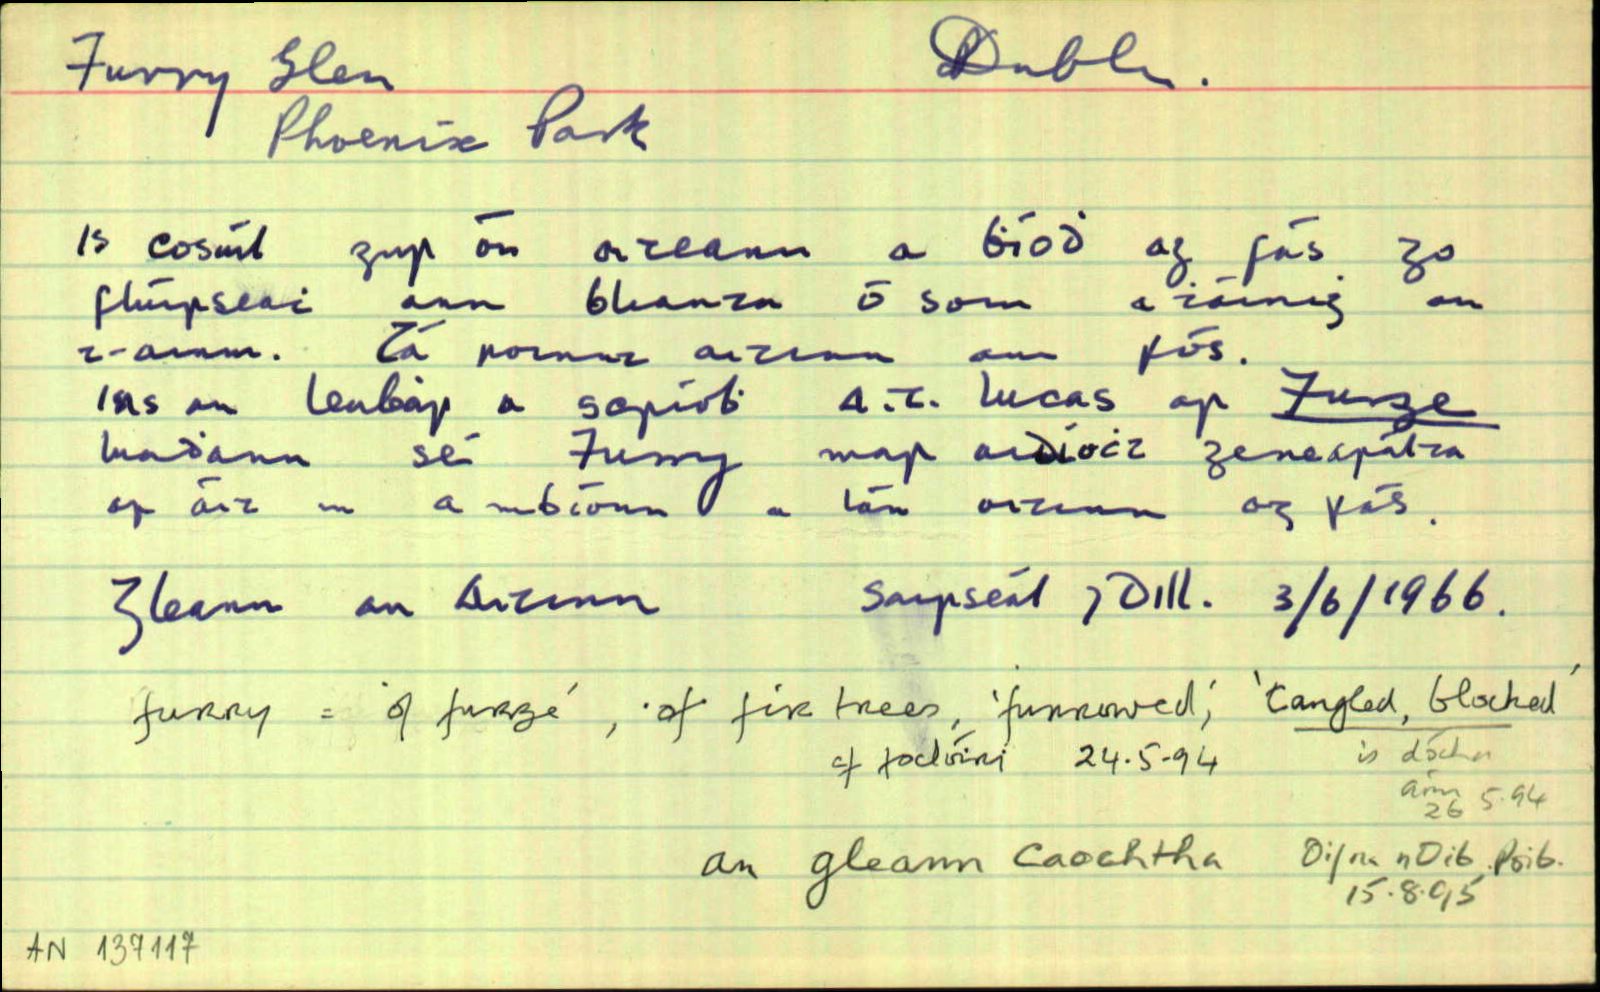 Furry Glen Dublin.
Phoenix Park
Is cosúil gur ón aiteann a bíoḋ ag fás go
flúirseaċ ann blianta ó soin a ṫáinig an
t-ainm. Tá roinnt aitinn ann fós.
Ins an leaḃar a scríoḃ A.T. Lucas ar Furze
luaḋann sé Furry mar aidiaċt
ar áit in a mbíonn a lán aitinn ag fás.
Gleann an Aitinn Sairséal ⁊ Dill. 3/6/1966.
furry = 'of furze', 'of fir trees, 'furrowed', 'tangled, blocked'
cf foclóirí 24.5.94 is dócha
26 5.94
an gleann Caochtha Oif na nDíb Poib.
15.8.95
AN 137117